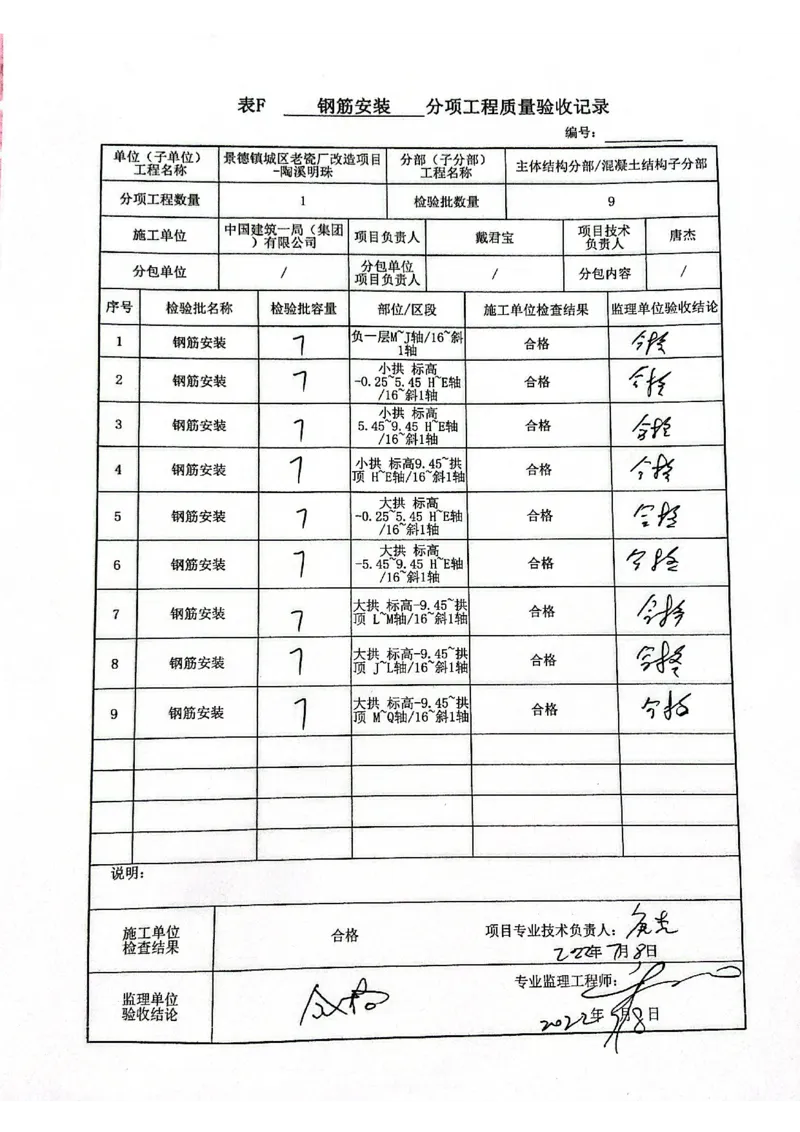 表F 钢筋安装 分项工程质量验收记录
编号：
单位（子单位）工程名称 景德镇城区老瓷厂改造项目-陶溪明珠 分部（子分部）工程名称 主体结构分部/混凝土结构子分部
分项工程数量 1 检验批数量 9
施工单位 中国建筑一局（集团）有限公司 项目负责人 戴君宝 项目技术负责人 唐杰
分包单位 / 分包单位项目负责人 / 分包内容 /
序号 检验批名称 检验批容量 部位/区段 施工单位检查结果 监理单位验收结论
1 钢筋安装 7 负一层M~J轴/16~斜1轴 合格 合格
2 钢筋安装 7 小拱 标高-0.25~5.45 H~E轴/16~斜1轴 合格 合格
3 钢筋安装 7 小拱 标高5.45~9.45 H~E轴/16~斜1轴 合格 合格
4 钢筋安装 7 小拱 标高9.45~拱顶 H~E轴/16~斜1轴 合格 合格
5 钢筋安装 7 大拱 标高-0.25~5.45 H~E轴/16~斜1轴 合格 合格
6 钢筋安装 7 大拱 标高-5.45~9.45 H~E轴/16~斜1轴 合格 合格
7 钢筋安装 7 大拱 标高-9.45~拱顶 L~M轴/16~斜1轴 合格 合格
8 钢筋安装 7 大拱 标高-9.45~拱顶 J~L轴/16~斜1轴 合格 合格
9 钢筋安装 7 大拱 标高-9.45~拱顶 M~Q轴/16~斜1轴 合格 合格
说明：
施工单位检查结果 合格 项目专业技术负责人：
2022年7月8日
监理单位验收结论 合格 专业监理工程师：
2022年 月8日